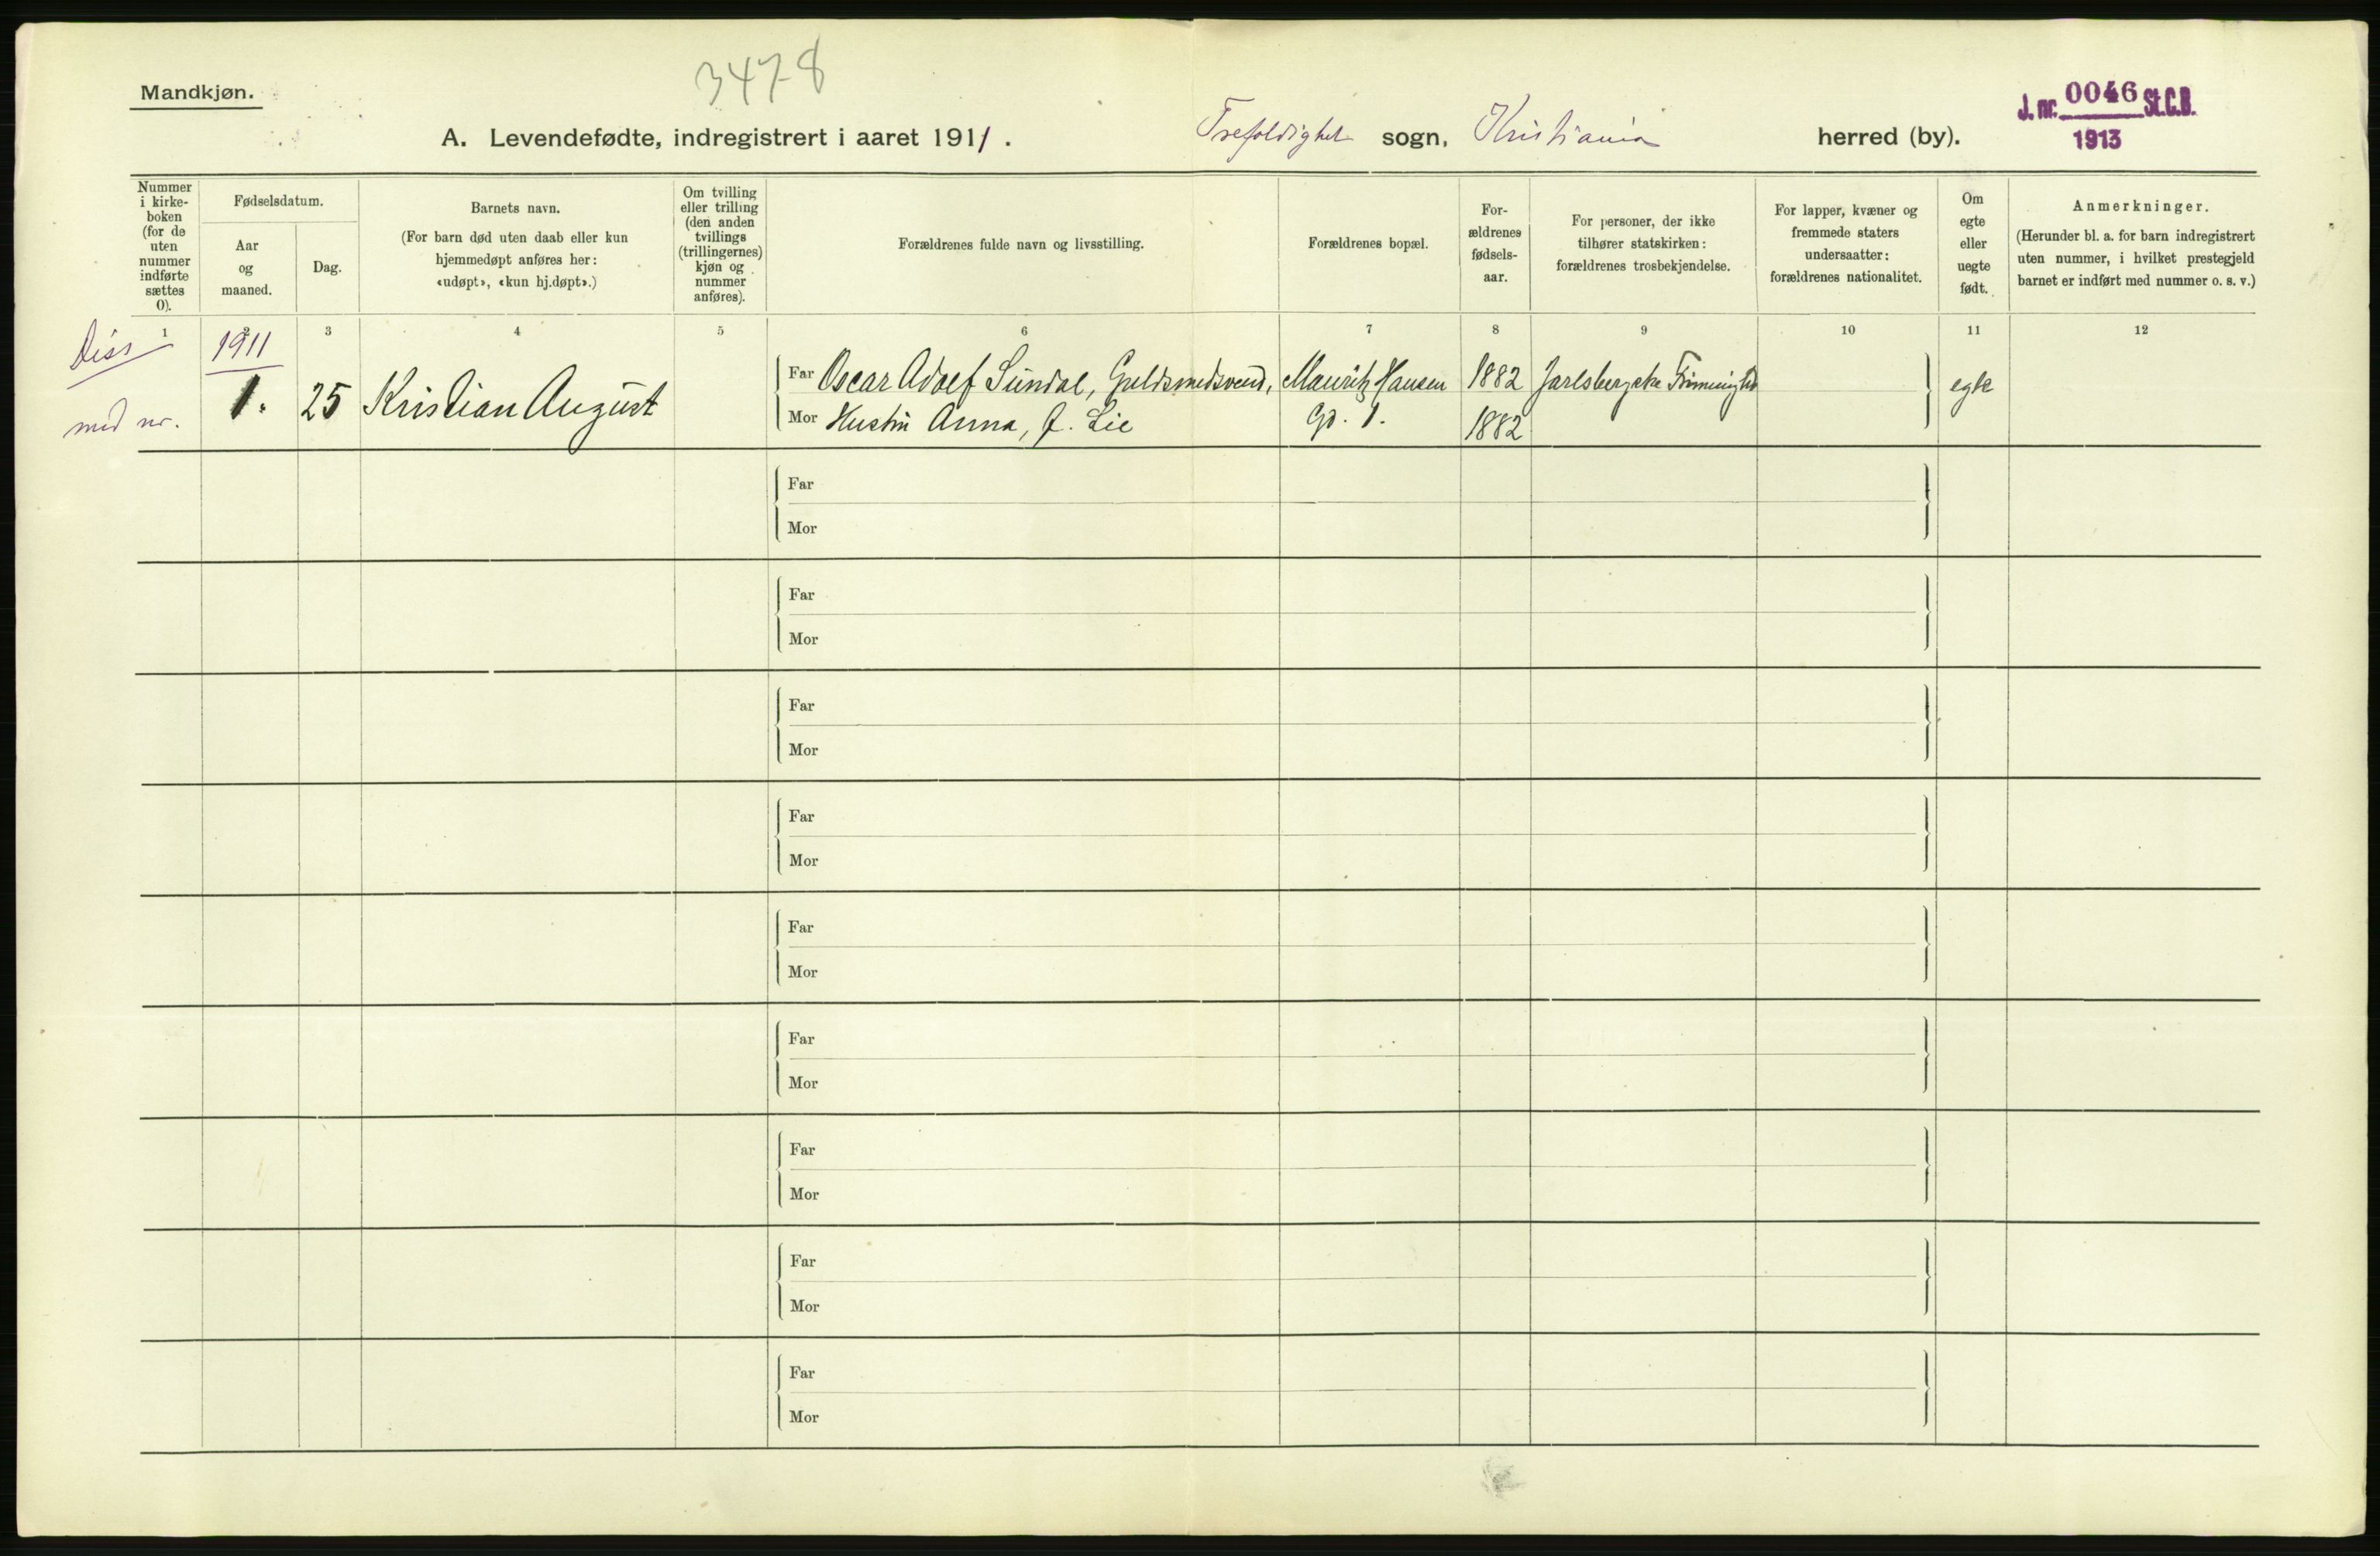 Mandkjøn.
3478
J. nr. 0046 St.C.B.
1913
A. Levendefødte, indregistrert i aaret 1911. Trefoldighet sogn, Kristiania herred (by).
Nummer i kirke-boken (for de uten nummer indførte sættes 0).
Fødselsdatum.
Aar og maaned.
Dag.
Barnets navn.
(For barn død uten daab eller kun hjemmedøpt anføres her: «udøpt», «kun hj.døpt».)
Om tvilling eller trilling (den anden tvillings (trillingernes) kjøn og nummer anføres).
Forældrenes fulde navn og livsstilling.
Forældrenes bopæl.
For-ældrenes fødsels-aar.
For personer, der ikke tilhører statskirken: forældrenes trosbekjendelse.
For lapper, kvæner og fremmede staters undersaatter: forældrenes nationalitet.
Om egte eller uegte født.
Anmerkninger.
(Herunder bl. a. for barn indregistrert uten nummer, i hvilket prestegjeld barnet er indført med nummer o. s. v.)
1 2 3 4 5 6 7 8 9 10 11 12
Diss 1911
med nr. 1. 25 Kristian August
Far Oscar Adolf Sundal, Guldsmedsvend, Mauritz Hansen 1882 Jarlsbergske Frimenighed egte
Mor Hustru Anna, f. Lie Gd. 1. 1882
Far
Mor
Far
Mor
Far
Mor
Far
Mor
Far
Mor
Far
Mor
Far
Mor
Far
Mor
Far
Mor